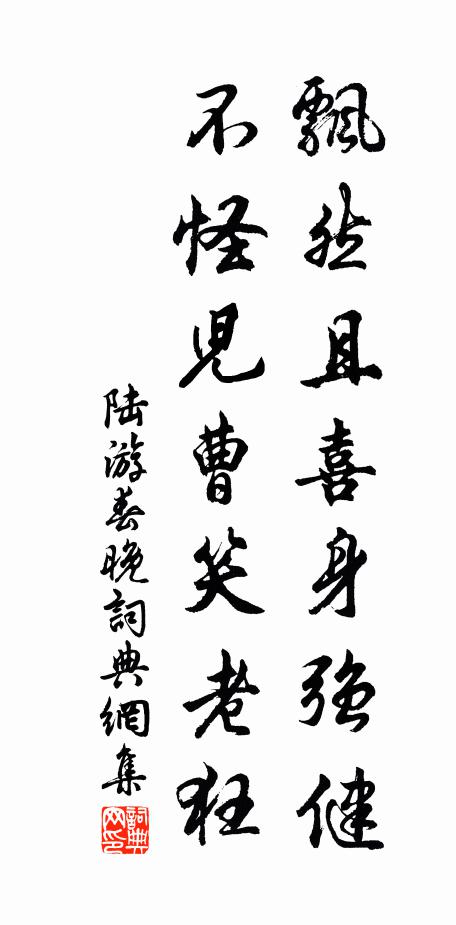 飄然且喜身強健
不怪児曹笑老狂
陆游春晚詞典網集
詞典网印